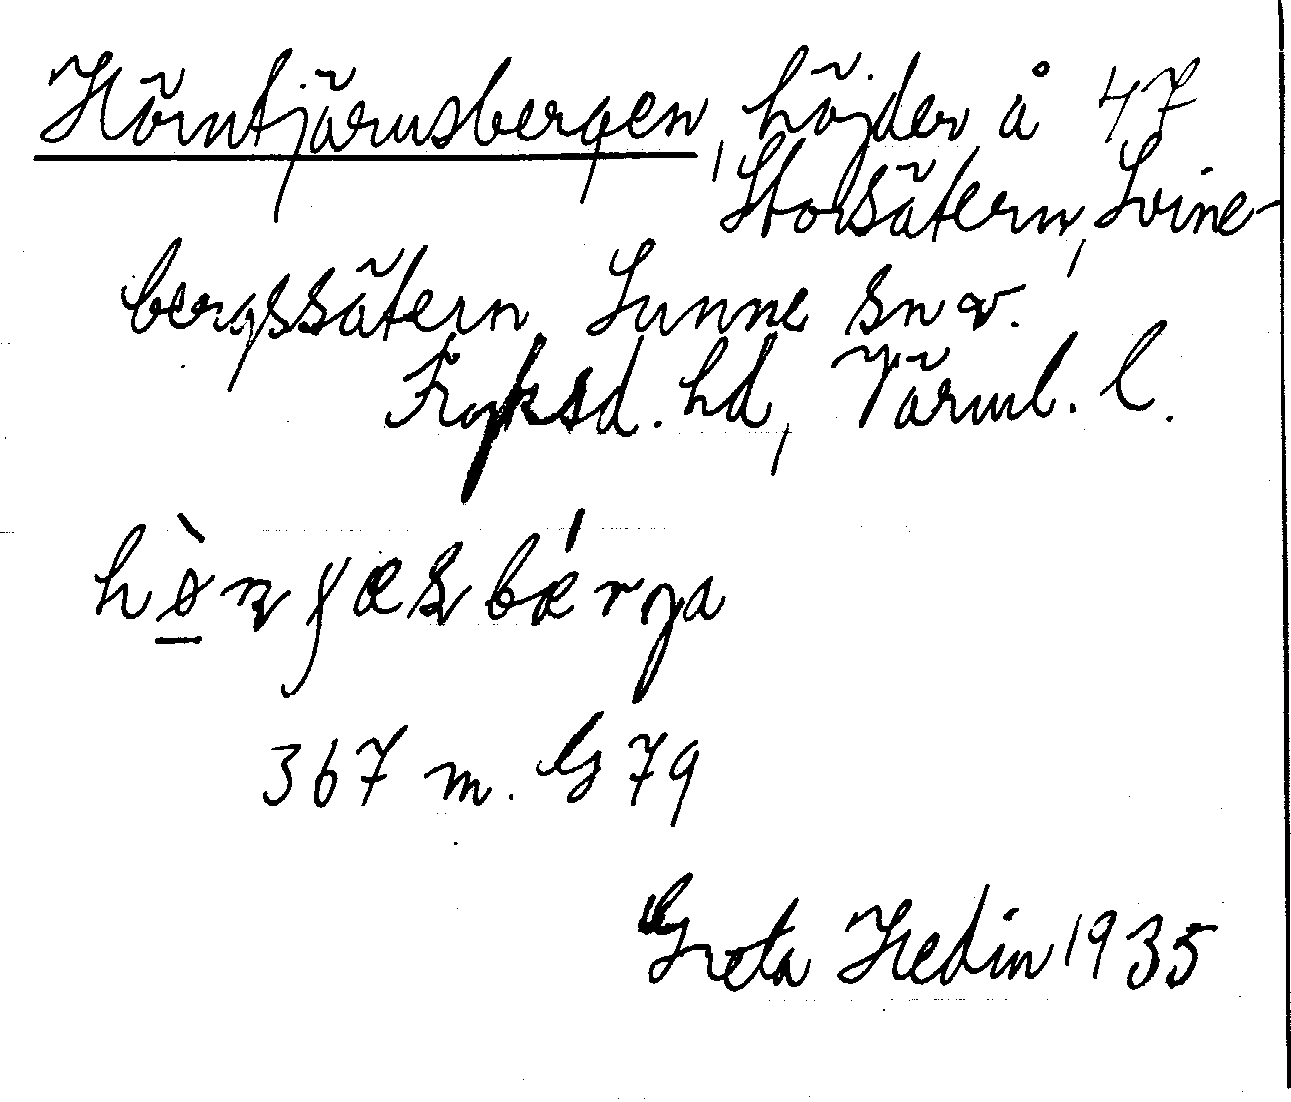 Hörntjärnsbergen, höjder å 47
Storsätern, Svine-
bergssätern, Sunne sn v.
Fryksd. hd, Värml. l.
367 m. G 79
Greta Hedin 1935